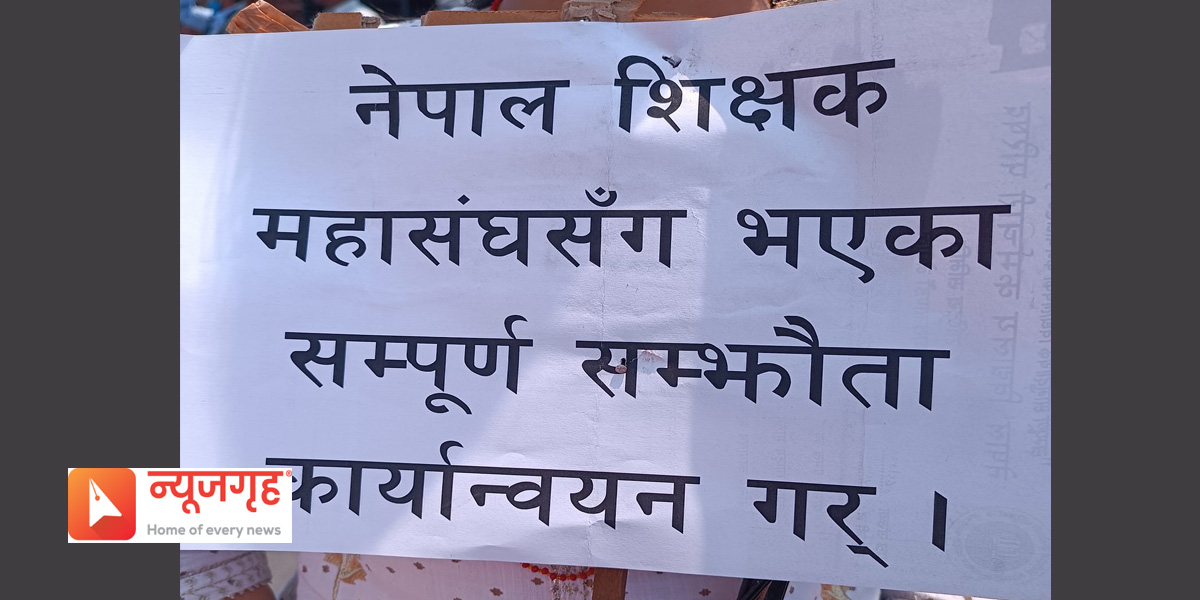 नेपाल शिंक्षक
महासंघसँग भएका
सम्पूर्ण सम्झौता
कार्यान्वयन गर् ।
न्यूजगृह®
Home of every news